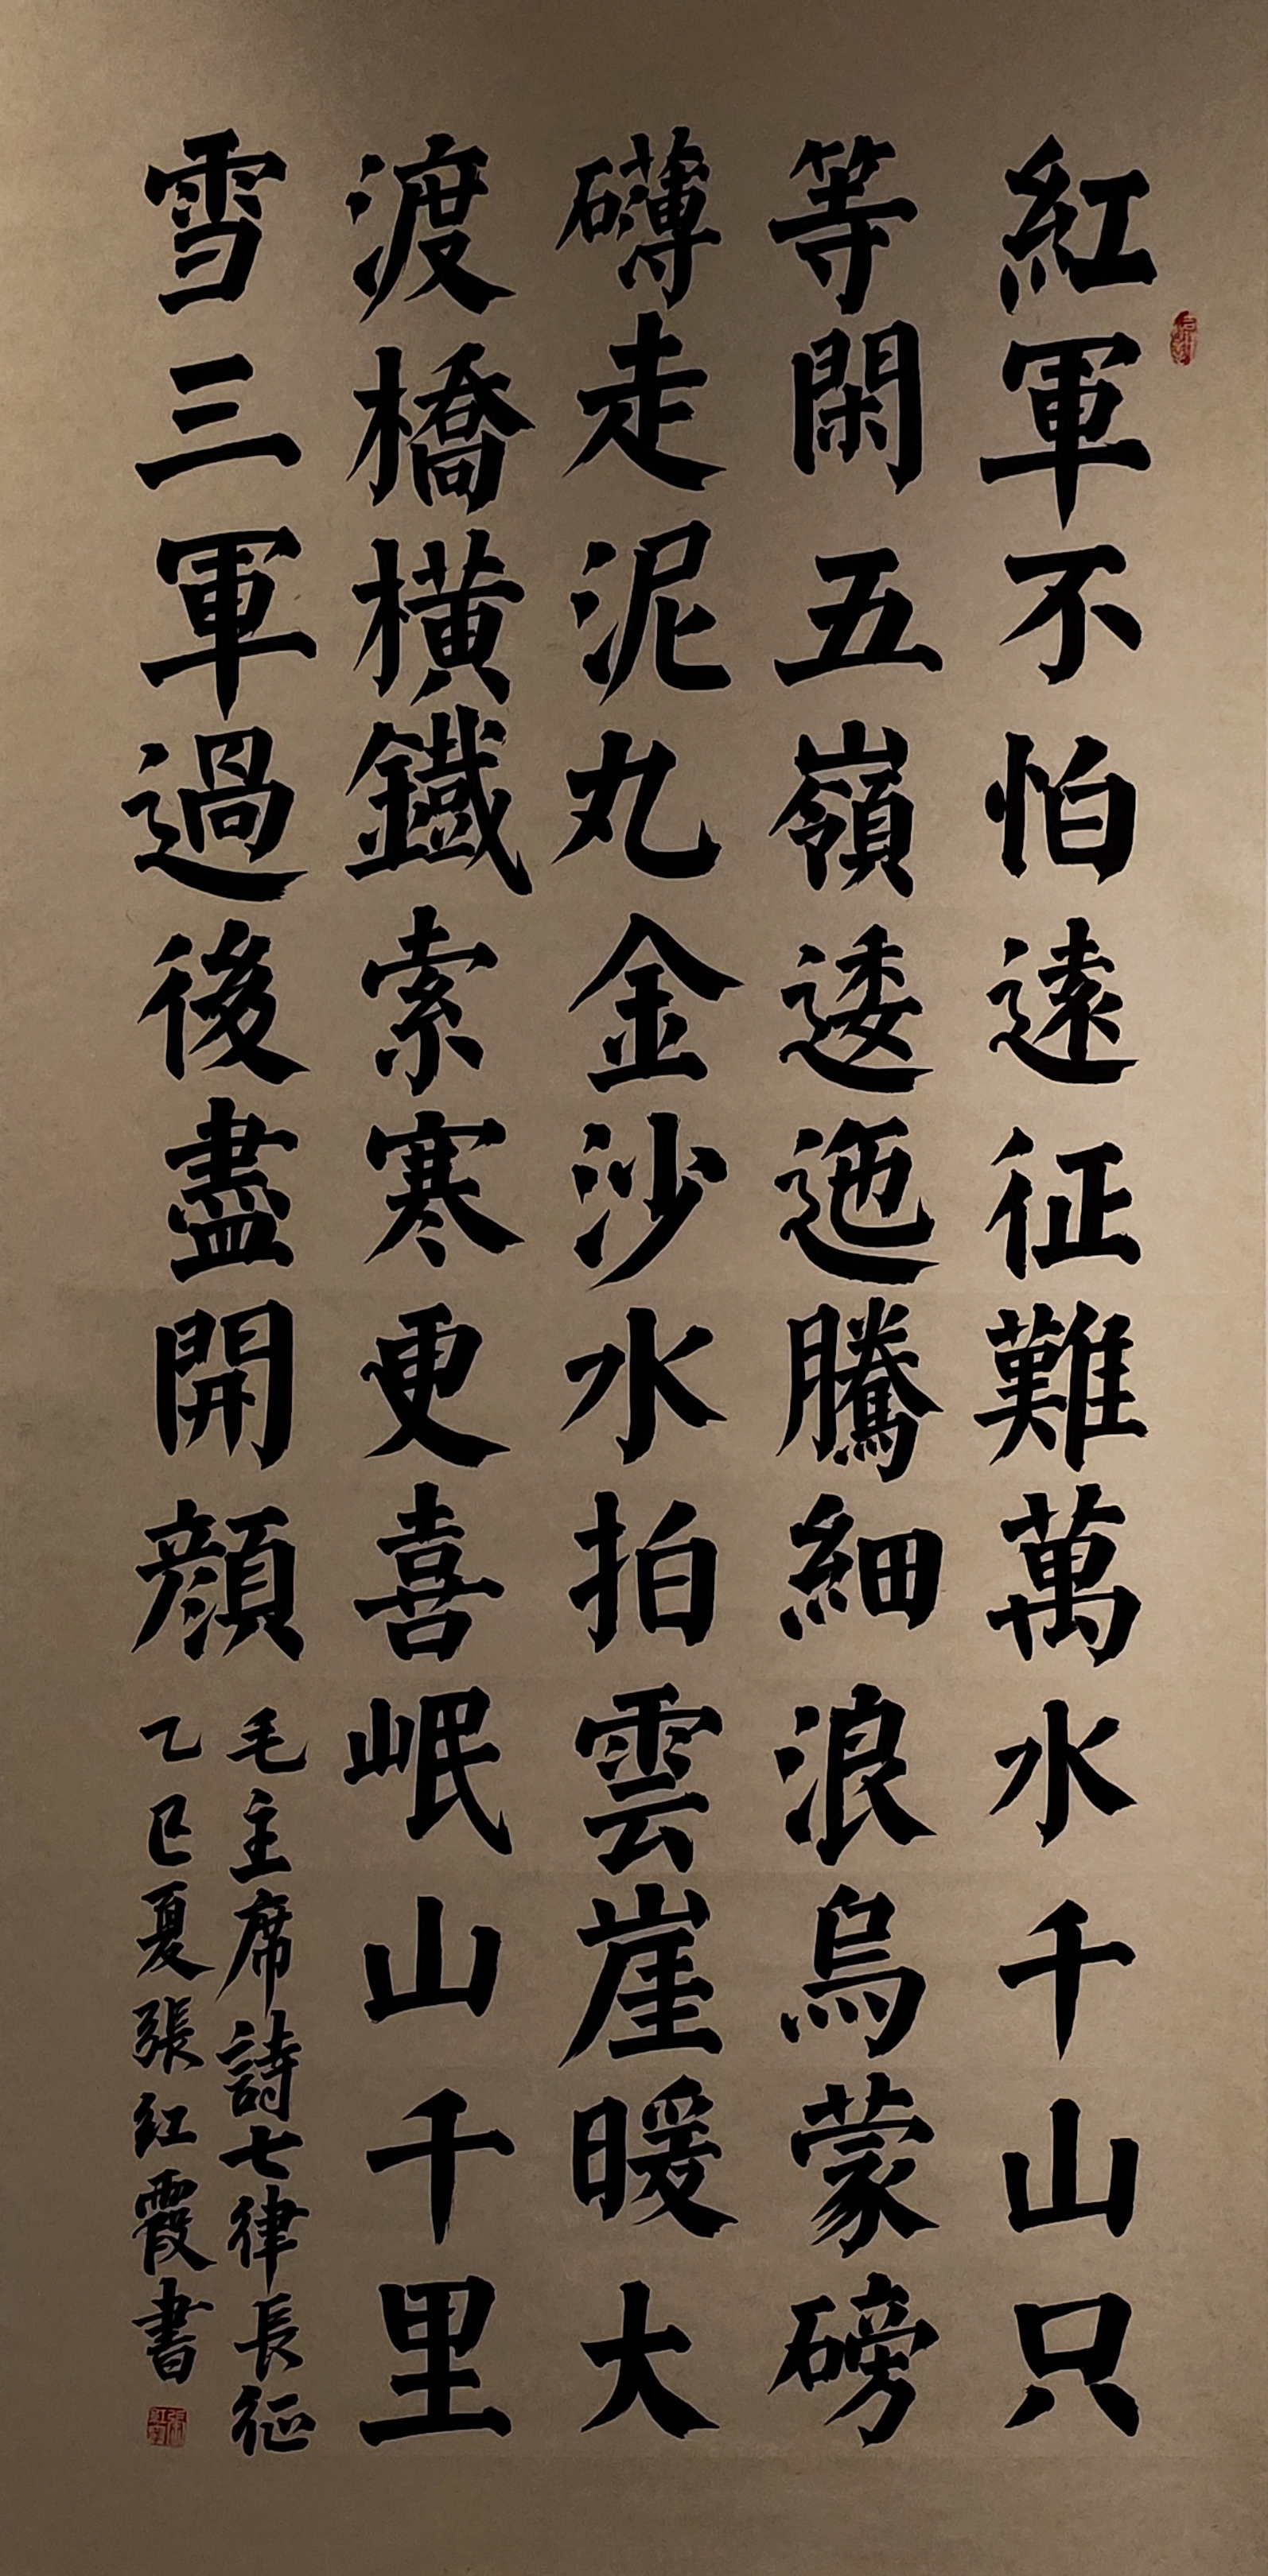 紅軍不怕遠征難萬水千山只
等閑五嶺逶迤騰細浪烏蒙磅
礴走泥丸金沙水拍雲崖暖大
渡橋橫鐵索寒更喜岷山千里
雪三軍過後盡開顔
毛主席詩七律長征
乙巳夏張红霞書